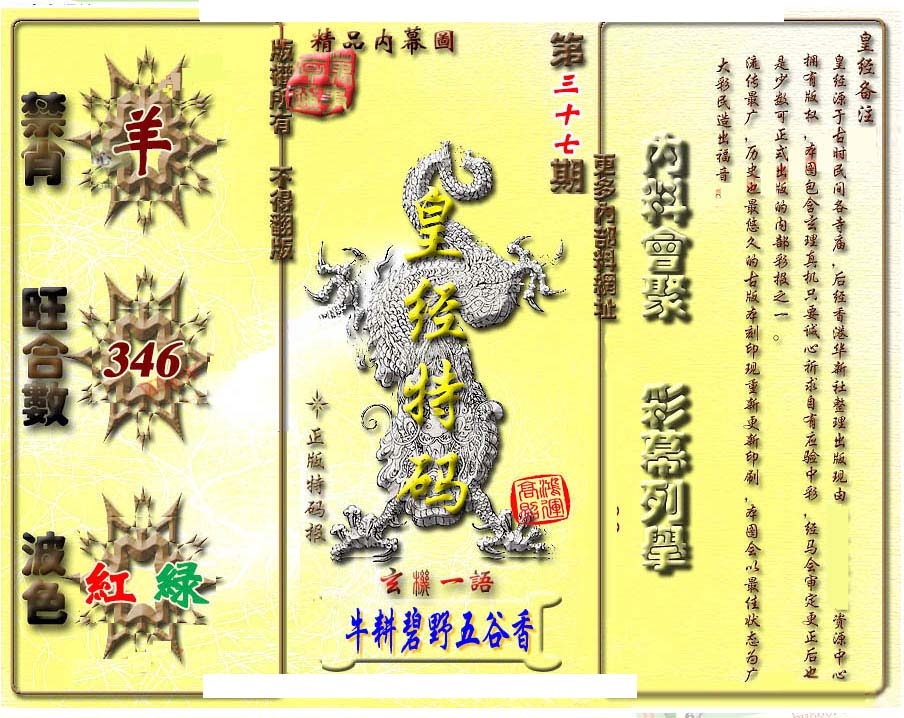 精品內幕圖
第三十七期
版權所有 不得翻版
更多內部料網址
禁肖
羊
旺合數
346
波色
紅 綠
皇经特码
正版特码报
鴻運高照
玄機一語
牛耕碧野五谷香
內料會聚
彩幕列舉
皇经备注
皇经源于古时民间各寺庙,后经香港华新社整理出版现由 资源中心
拥有版权,本图包含玄理真机只要诚心祈求自有应验中彩,经马会审定更正后也
是少数可正式出版的内部彩报之一。
流传最广,历史也最悠久的古版本刻印现重新更新印刷,本图会以最佳状态为广
大彩民造出福音